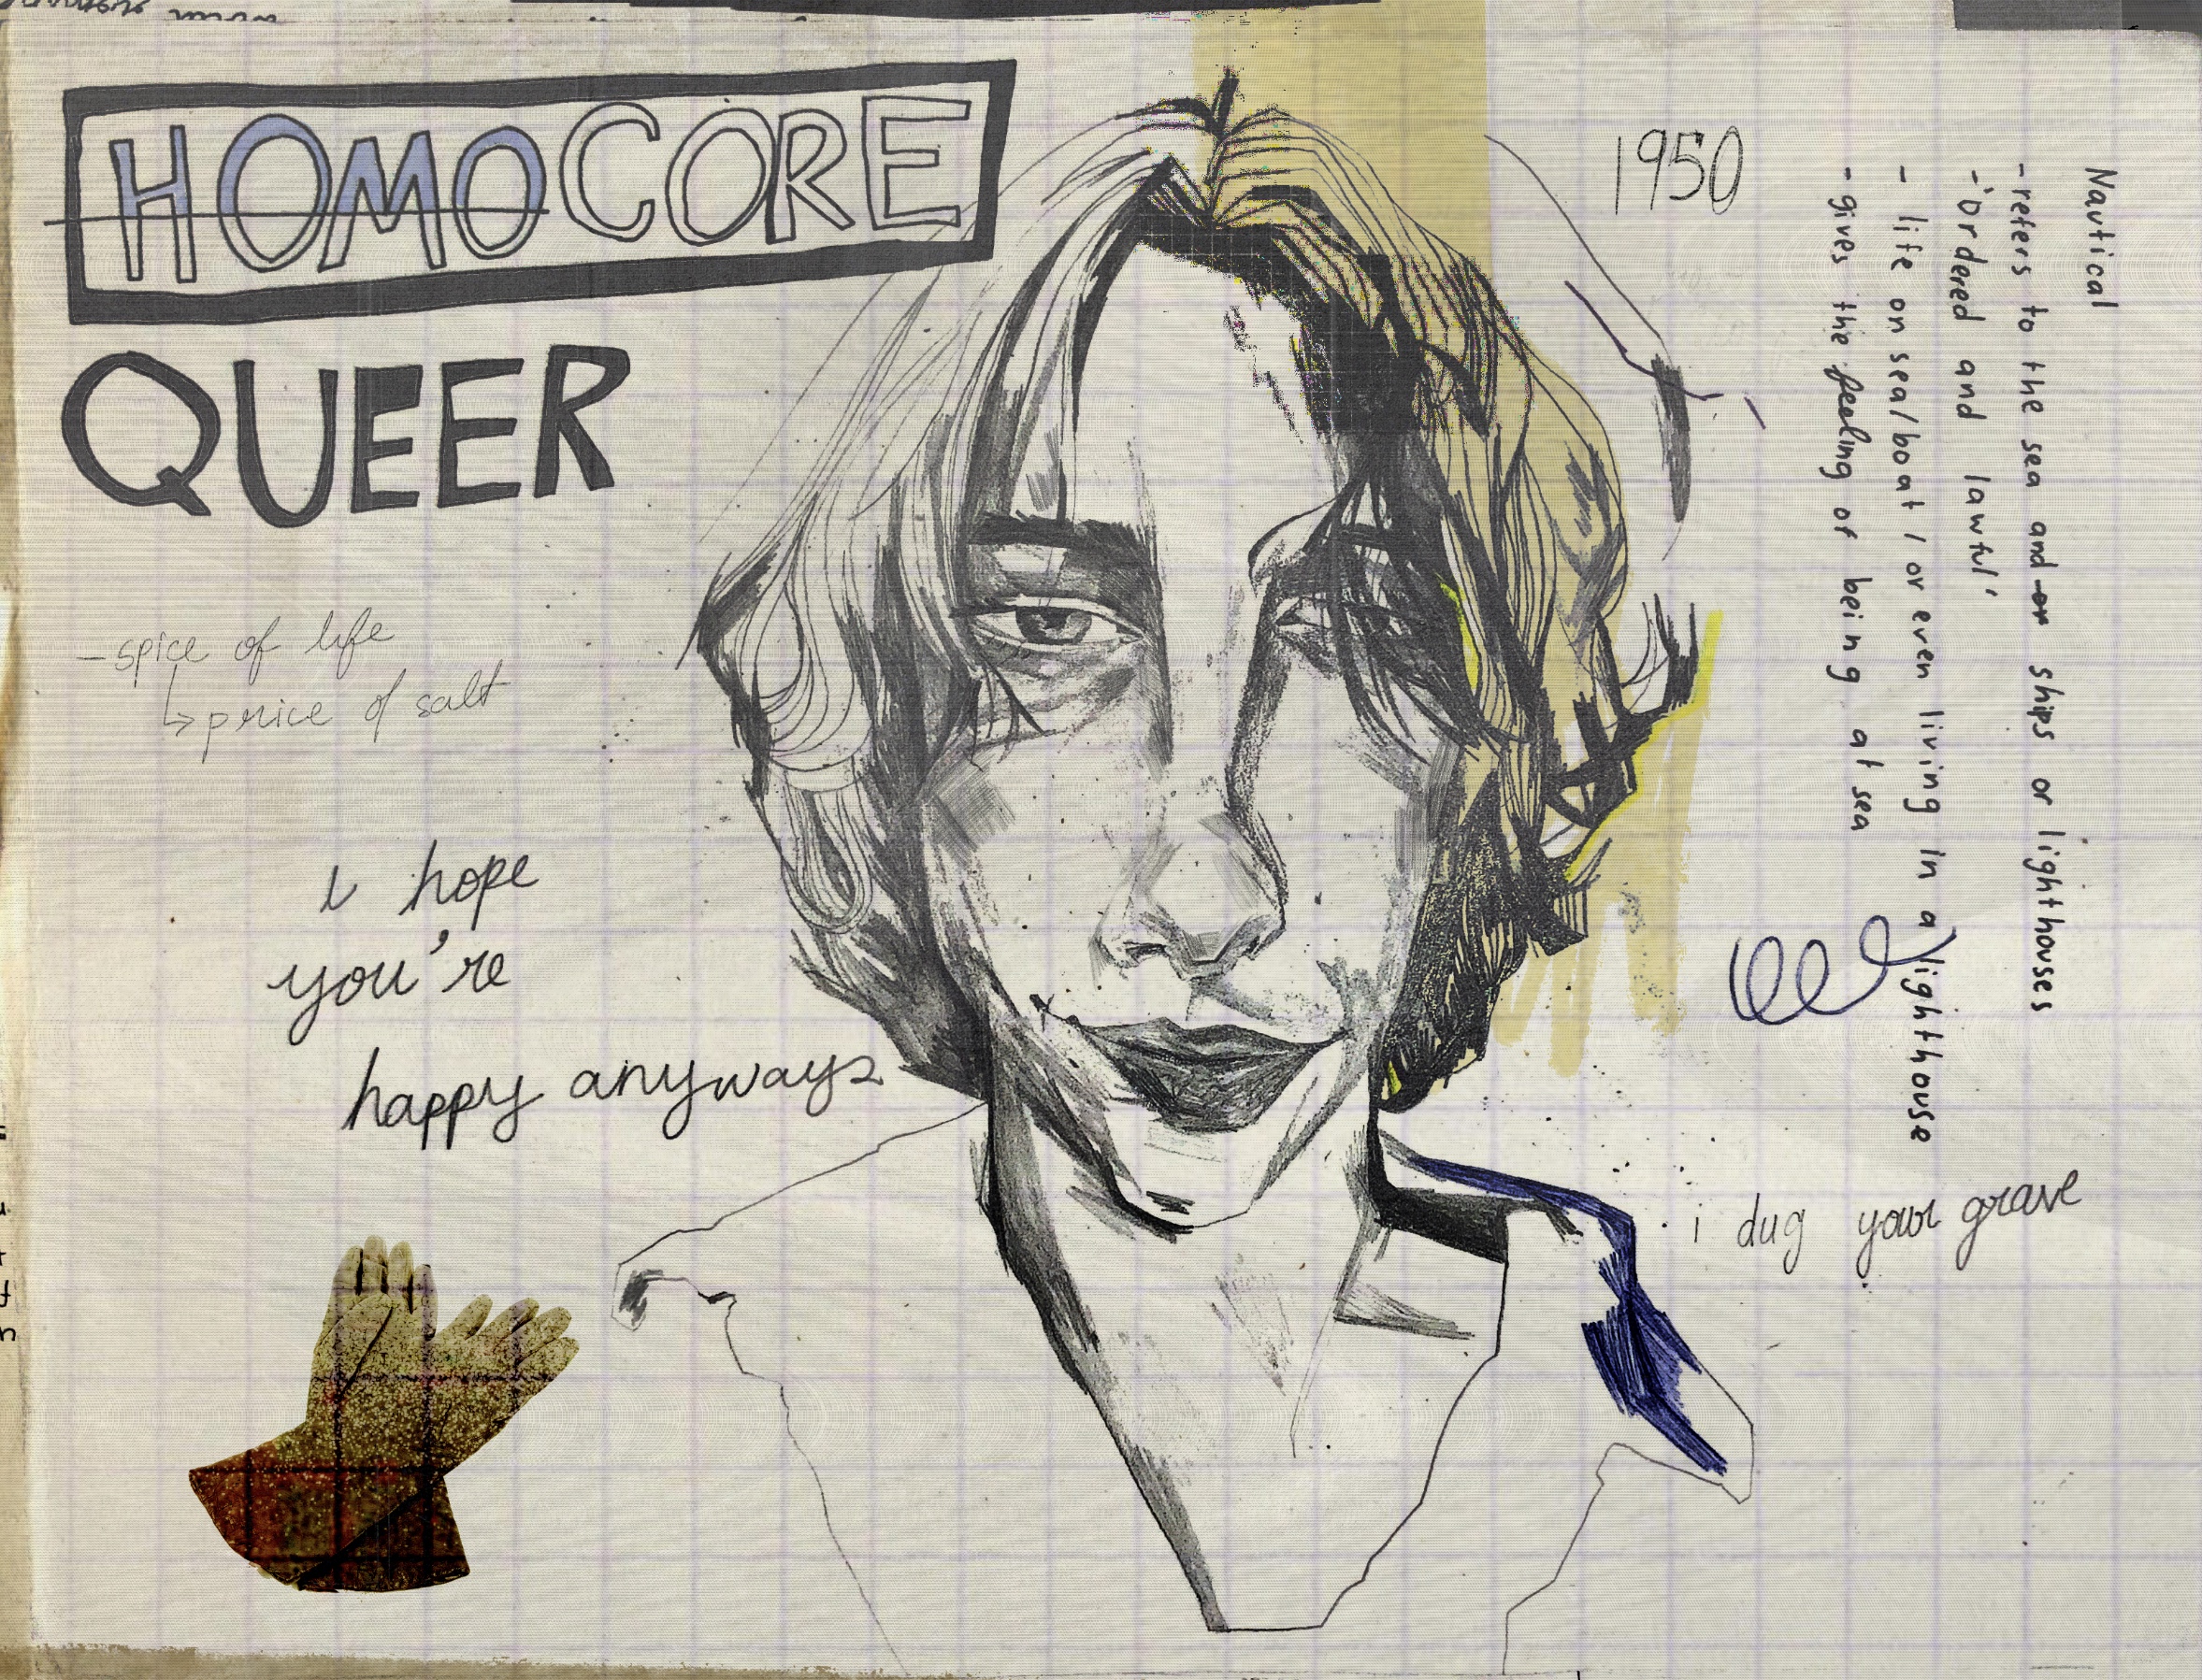 HOMOCORE
QUEER
1950
- spice of life
↳ price of salt
i hope
you're
happy anyways
Nautical
- refers to the sea and or ships or lighthouses
- 'ordered and lawful'
- life on sea/boat / or even living in a lighthouse
- gives the feeling of being at sea
i dug your grave